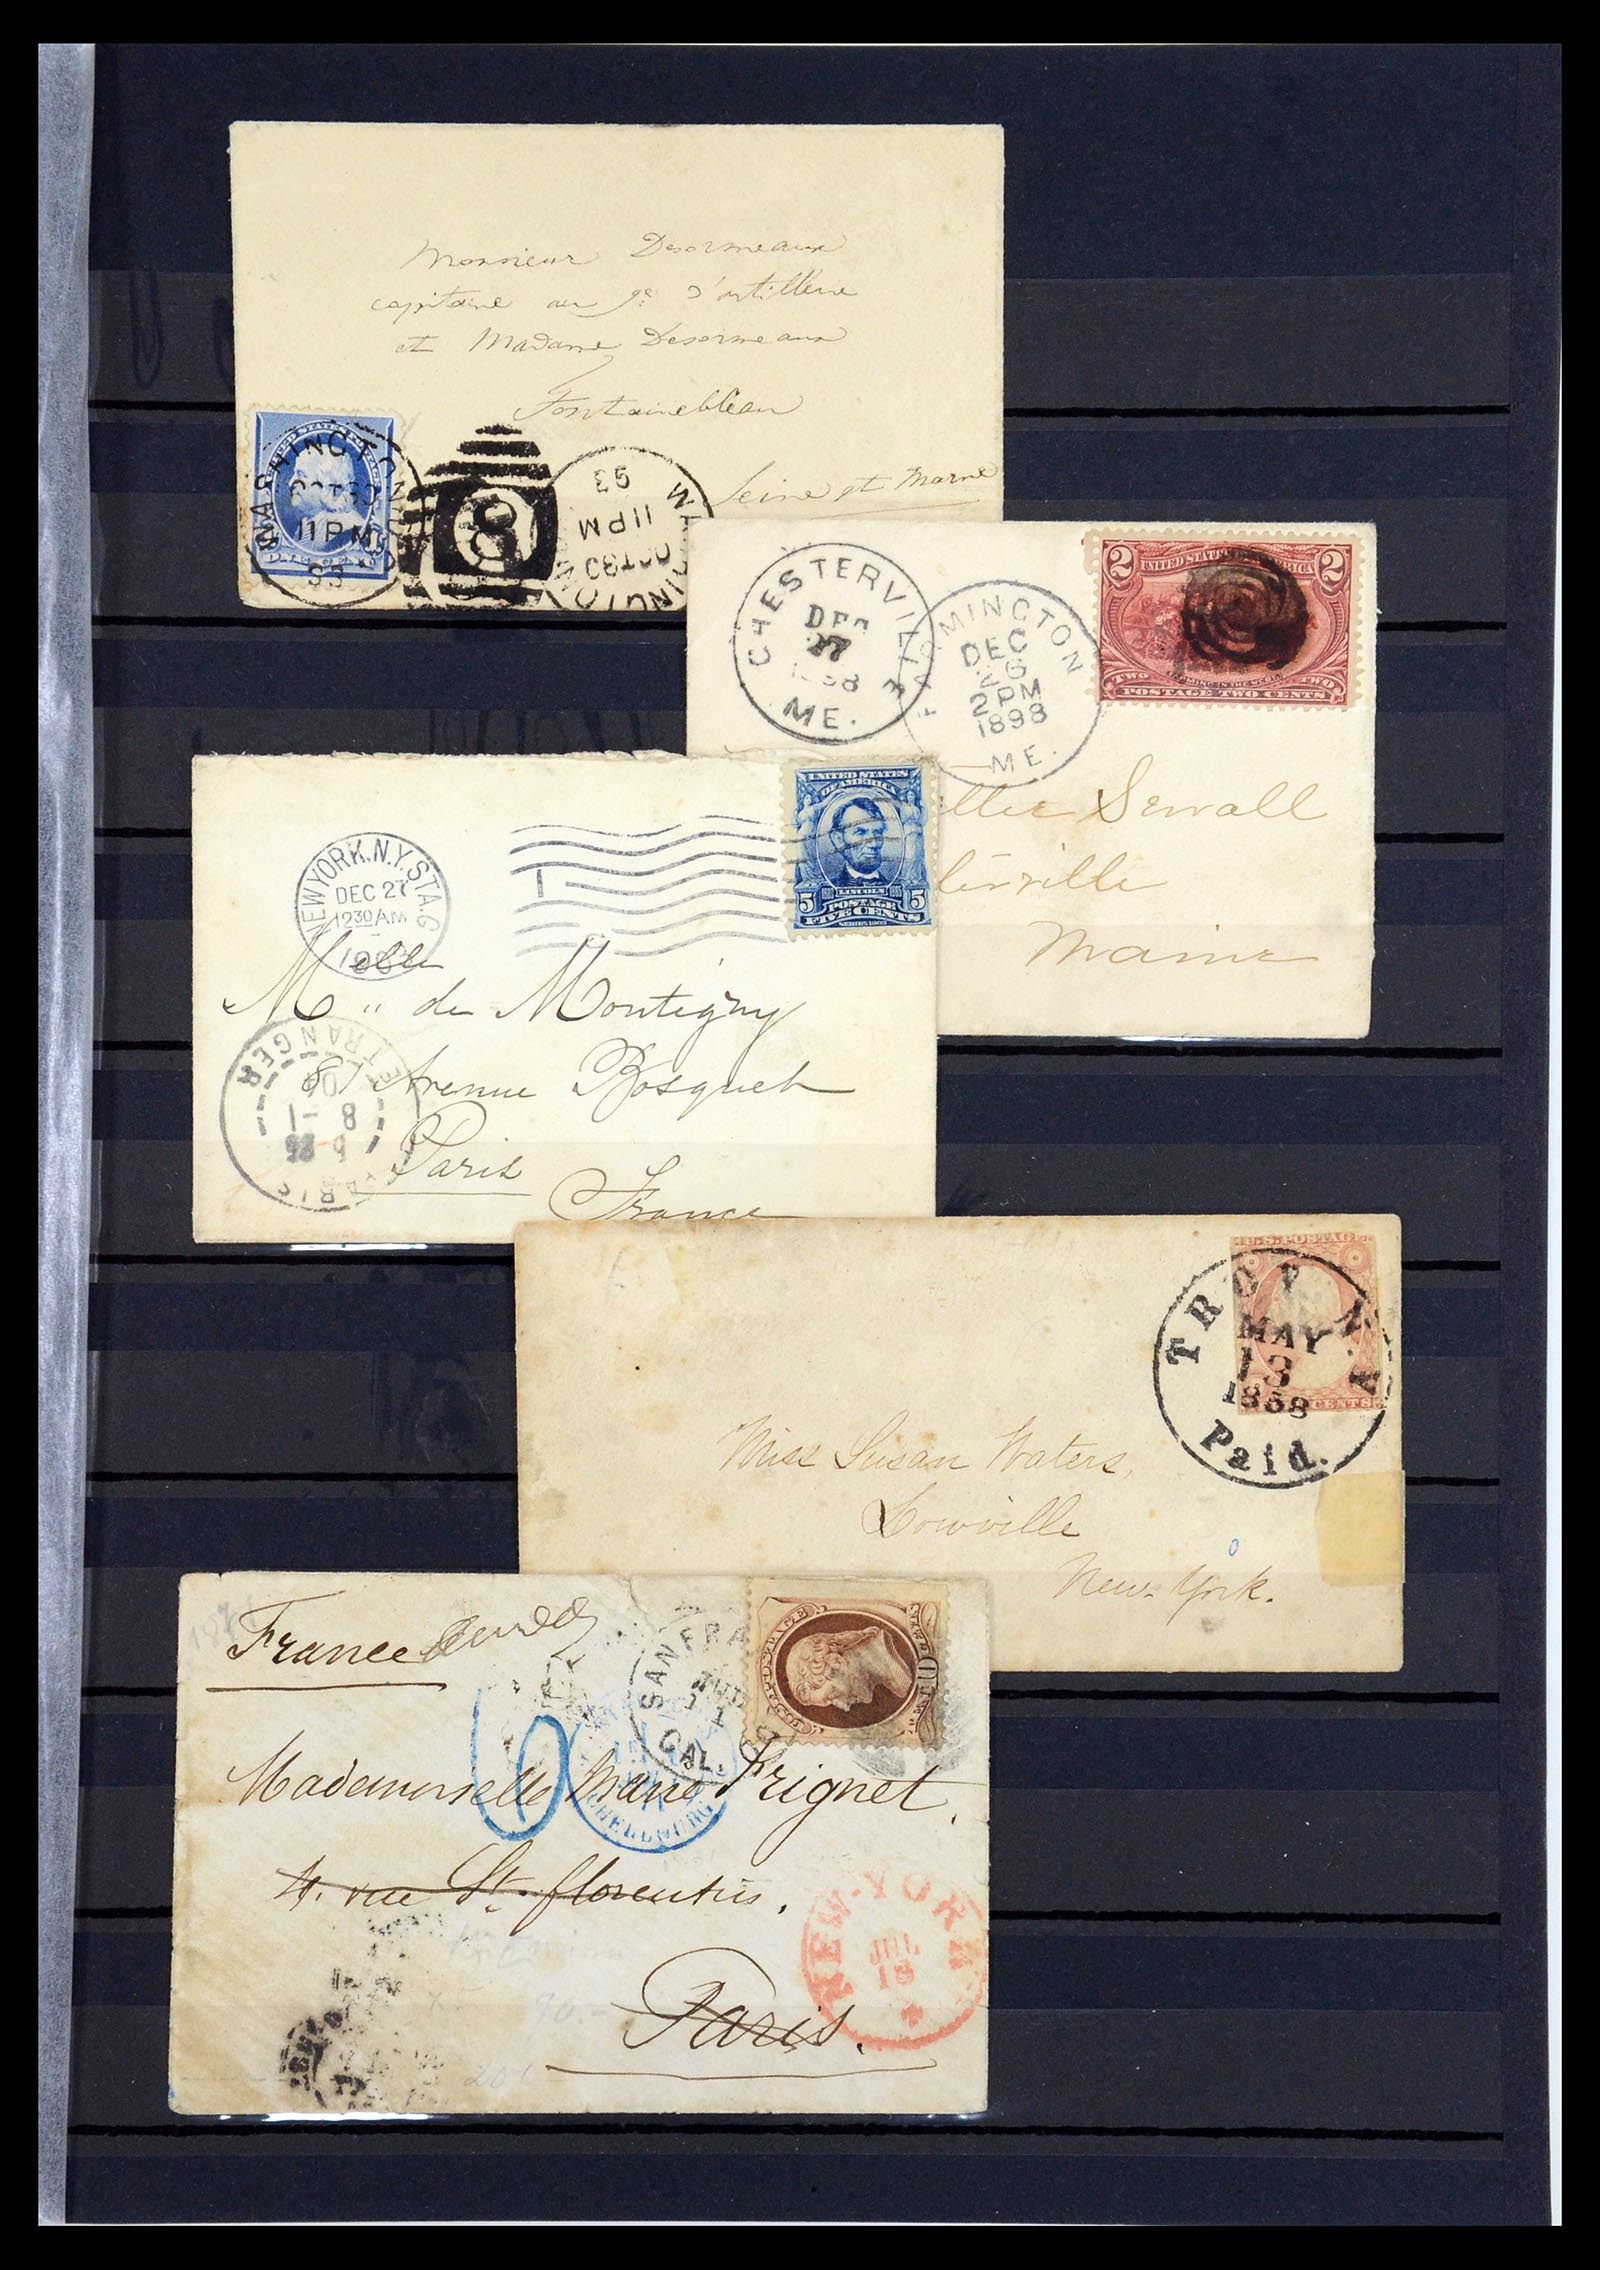 Monsieur Desormeaux
capitaine au 9e d'artillerie
et Madame Desormeaux
Fontainebleau
Seine et Marne
UNITED STATES POSTAGE
ONE CENT
WASHINGTON
OCT 30
11 PM
93
8
93
11 PM
OCT 30
WASHINGTON
CHESTERVILLE
DEC
27
1898
ME.
FARMINGTON
DEC
26
2 PM
1898
ME.
2 UNITED STATES OF AMERICA 2
TWO TWO
POSTAGE TWO CENTS
Sewall
Maine
NEW YORK, N.Y. STA. G
DEC 27
12 30 AM
1
UNITED STATES
OF AMERICA
5 LINCOLN 5
POSTAGE
FIVE CENTS
SERIES 1902
Melle de Montigny
81 Avenue Bosquet
Paris
France
PARIS
ETRANGER
8 -1
U.S. POSTAGE
CENTS
TROY N.Y.
MAY
13
1858
Paid.
Miss Susan Waters,
Lowville
New-York.
France
SAN FRA
CAL.
CHERBOURG
Mademoiselle Marie Frignet,
4. rue St. florentin,
Paris.
NEW-YORK
JUL
18